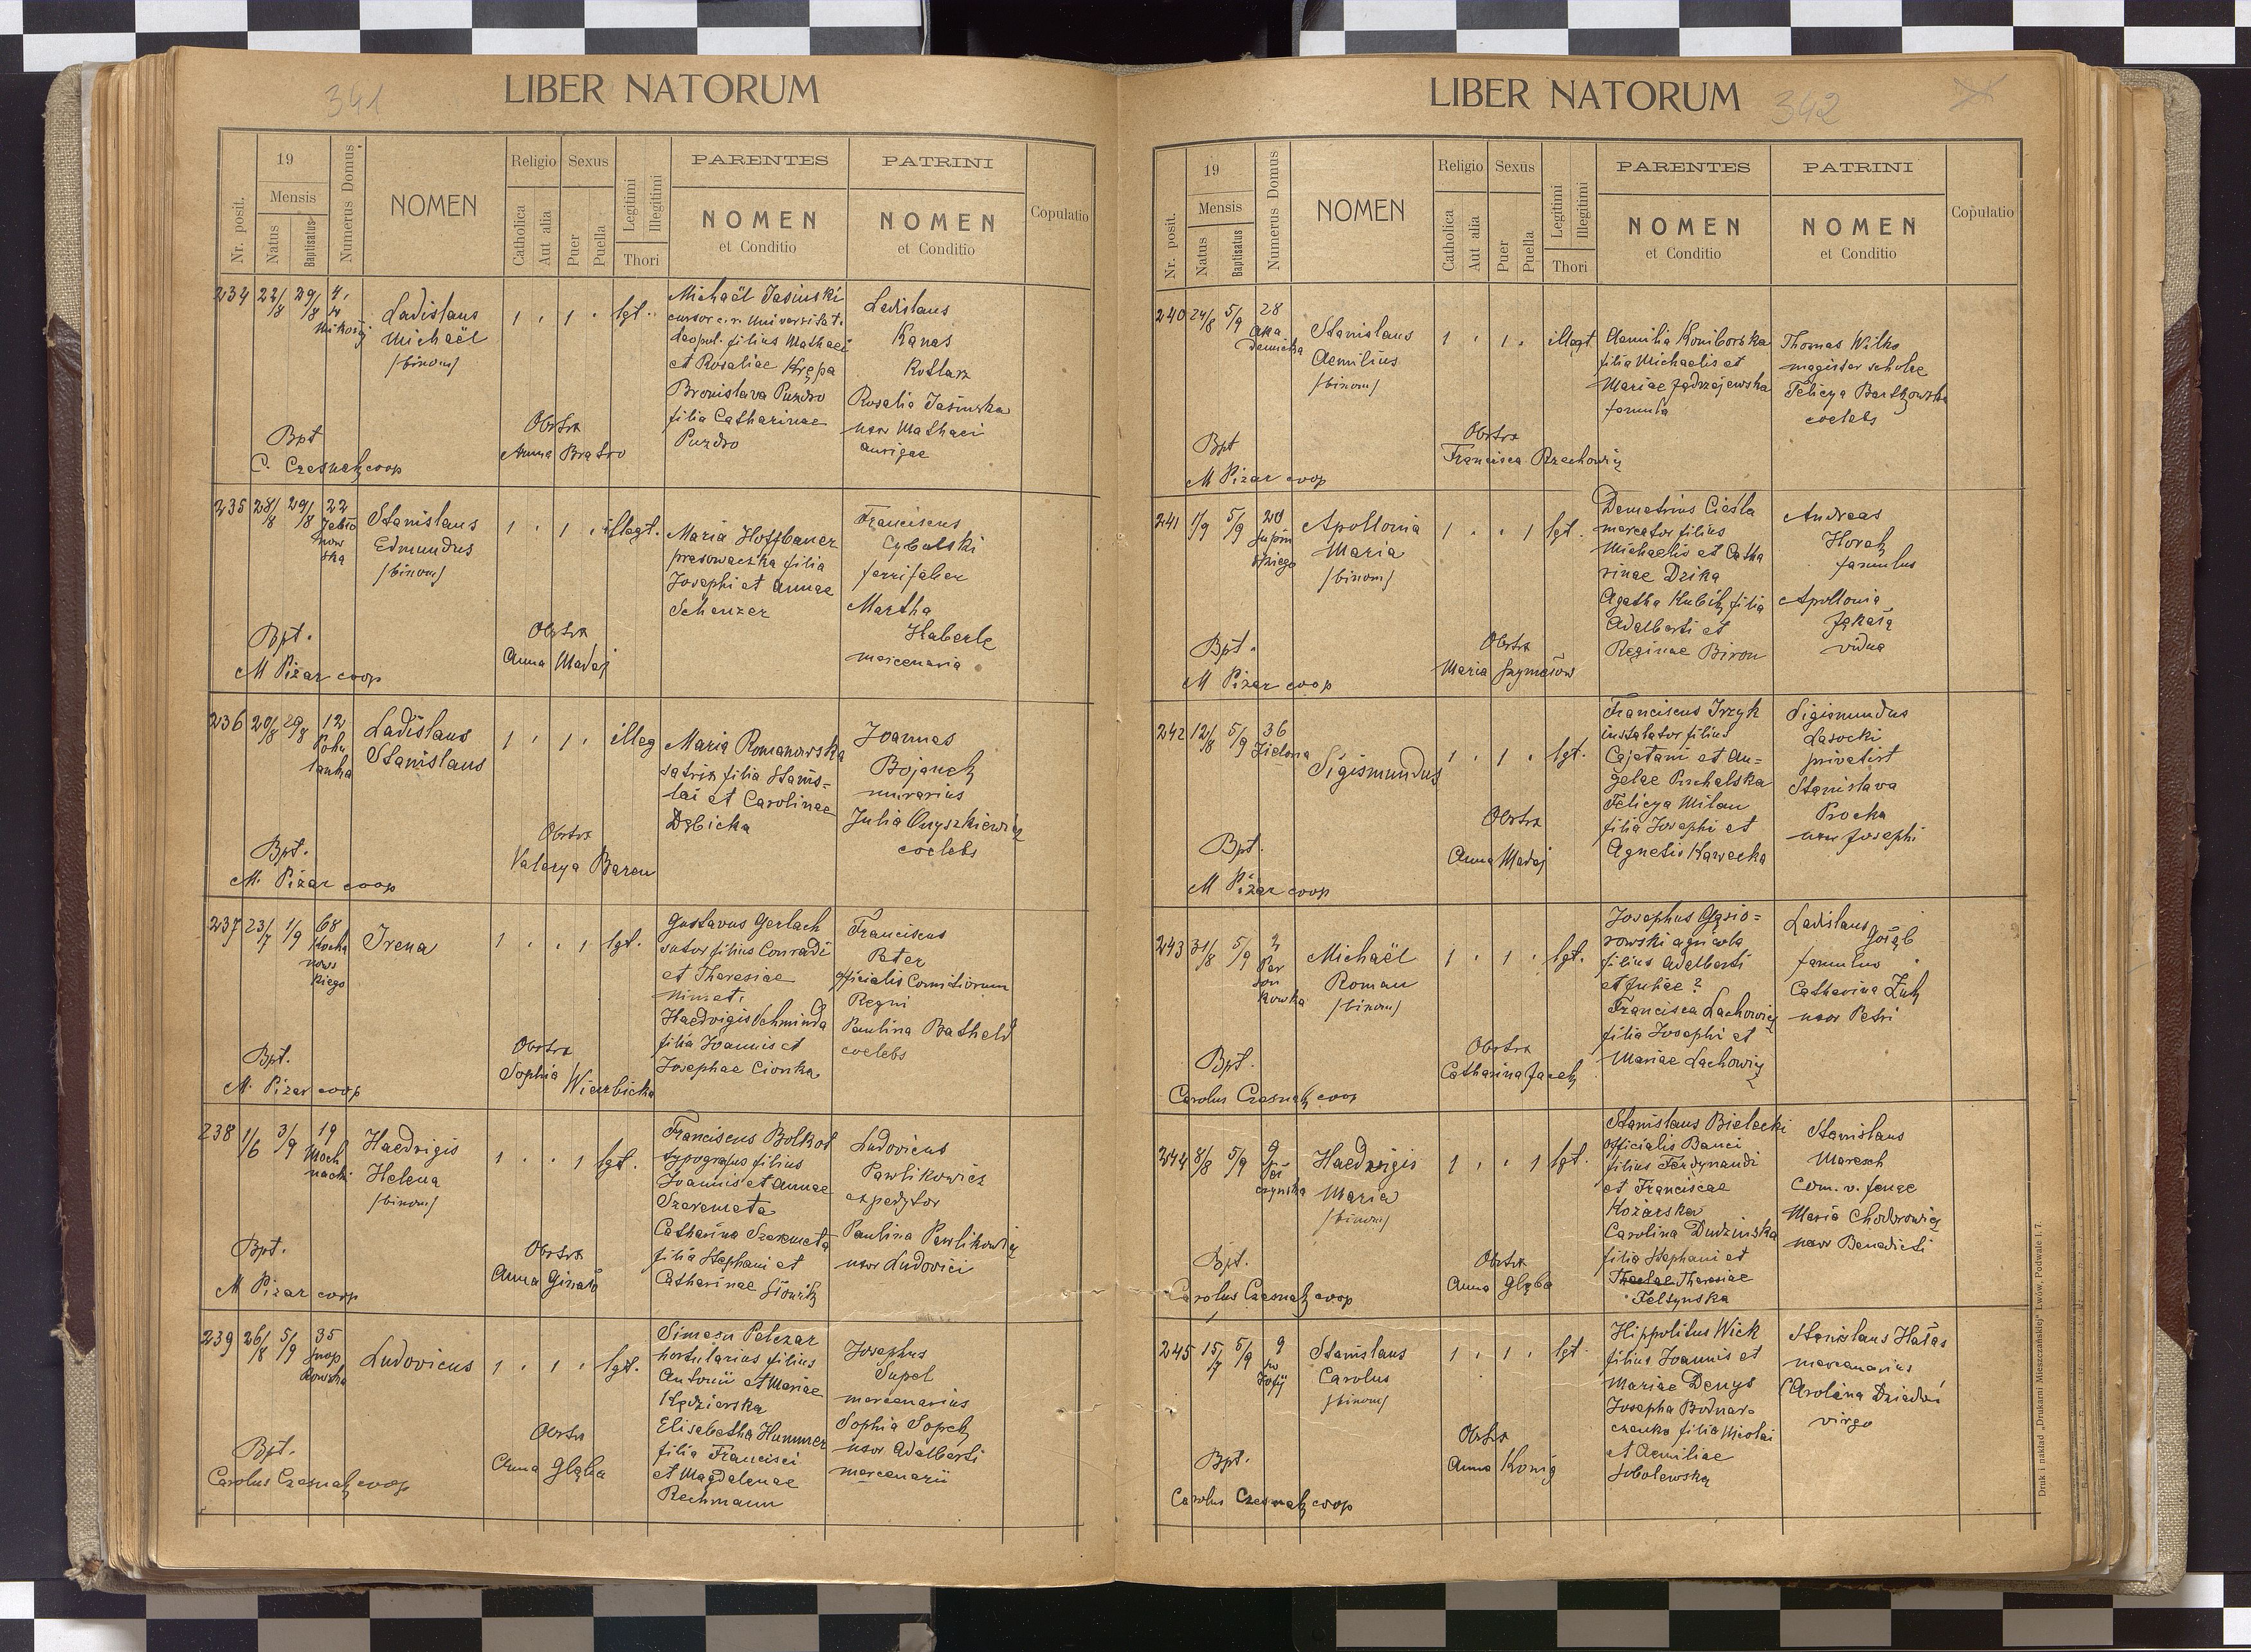 341
LIBER NATORUM
Nr. posit.
19
Mensis
Natus
Baptisatus
Numerus Domus
NOMEN
Religio
Catholica
Aut alia
Sexus
Puer
Puella
Legitimi
Illegitimi
Thori
PARENTES
NOMEN
et Conditio
PATRINI
NOMEN
et Conditio
Copulatio
234 22/8 29/8 4.
Ladislaus
Michaël
/binom/
1 . 1 . lgt.
Michaël Jasinski
cursor c. r. Universitat.
leopol. filius Mathaei
et Rosaliae Krępa
Bronislava Puzdro
filia Catharinae
Puzdro
Ladislaus
Kanas
Kotlarz
Rosalia Jasinska
uxor Mathaei
aurigae
Bpt
C. Czesnak coop
Obstrx
Anna Bratro
235 28/8 29/8 22
Jabło
now
ska
Stanislaus
Edmundus
/binom/
1 . 1 . illegt.
Maria Hoffbauer
prasowaczka filia
Josephi et Annae
Schenzer
Franciscus
Cybulski
ferrifaber
Martha
Haberle
mercenaria
Bpt.
M Pizar coop
Obstrx
Anna Madaj
236 20/8 29/8 12
Pohu
lanka
Ladislaus
Stanislaus
1 . 1 . illeg
Maria Romanowska
satrix filia Stanis-
lai et Carolinae
Dębicka
Joannes
Bojanek
murarius
Julia Onyszkiewicz
coelebs
Bpt.
M. Pizar coop
Obstrx
Valerya Baren
237 23/7 1/9 68
Kocha
nows
kiego
Irena
1 . . 1 lgt.
Gustavus Gerlach
sutor filius Conradi
et Theresiae
Haedvigis Schminda
filia Joannis et
Josephae Cionka
Franciscus
Peter
officialis Comitiorum
Regni
Paulina Batheld
coelebs
Bpt.
M. Pizar coop
Obstrx
Sophia Wierbicka
238 1/6 3/9 19
Moch
nacki
Haedvigis
Helena
/binom/
1 . . 1 lgt.
Franciscus Bolkot
typografus filius
Joannis et Annae
Szeremeta
Catharina Szeremeta
filia Stephani et
Catharinae
Ludovicus
Pawlikowicz
expedytor
Paulina Pawlikowicz
uxor Ludovici
Bpt.
M Pizar coop
Obstrx
Anna
239 26/8 5/9 35
Snop
kowska
Ludovicus
1 . 1 . lgt.
Simeon Pelczar
hortularius filius
Antonii et Mariae
Kędzierska
Elisabetha Hummer
filia Francisci
et Magdalenae
Rechmann
Josephus
Supel
mercenarius
Sophia Sopek
uxor Adalberti
mercenarii
Bpt.
Carolus Czesnak coop
Obstrx
Anna Głąba
LIBER NATORUM
342
Nr. posit.
19
Mensis
Natus
Baptisatus
Numerus Domus
NOMEN
Religio
Catholica
Aut alia
Sexus
Puer
Puella
Legitimi
Illegitimi
Thori
PARENTES
NOMEN
et Conditio
PATRINI
NOMEN
et Conditio
Copulatio
240 24/8 5/9 28
Aka
demicka
Stanislaus
Aemilius
/binom/
1 . 1 . illegt.
Aemilia Koniborska
filia Michaelis et
Mariae Jędrzejewska
famula
Thomas Wilks
magister scholae
Felicya Bartkowska
coelebs
Bpt
M Pizar coop
Obstrx
Francisca Rzechowicz
241 1/9 5/9 20
Supiń
skiego
Apollonia
Maria
/binom/
1 . . 1 lgt.
Demetrius Cieśla
mercator filius
Michaelis et Catha
rinae Dzika
Agatha Kubik filia
Adalberti et
Reginae Biron
Andreas
Horak
famulus
Apollonia
vidua
Bpt.
M Pizar coop
Obstrx
Maria Szymciow
242 12/8 5/9 36
Zielona
Sigismundus
1 . 1 . lgt.
Franciscus Irzyk
instalator filius
Cajetani et An-
gelae Puchalska
Felicya Milan
filia Josephi et
Agnetis Kawecka
Sigismundus
Lasocki
privatist
Stanislava
Procka
uxor Josephi
Bpt.
M Pizar coop
Obstrx
Anna Madaj
243 31/8 5/9 2
Per
sen
kowka
Michaël
Roman
/binom/
1 . 1 . lgt.
Josephus Gąsio-
rowski agricola
filius Adalberti
et Juliae ?
Francisca Lachowicz
filia Josephi et
Mariae Lachowicz
Ladislaus Gołąb
famulus
Catharina Żuk
uxor Petri
Bpt.
Carolus Czesnak coop
Obstrx
Catharina Jacek
244 8/8 5/9 9
Haedvigis
Maria
/binom/
1 . . 1 lgt.
Stanislaus Bielecki
officialis Banci
filius Ferdynandi
et Franciscae
Kozarska
Carolina Dudzinska
filia Stephani et
Theclae Theresiae
Felsynska
Stanislaus
Maresch
Maria Chodorowicz
uxor Benedicti
Bpt.
Carolus Czesnak coop
Obstrx
Anna Głąba
245 15/7 5/9 9
św
Zofij
Stanislaus
Carolus
/binom/
1 . 1 . lgt.
Hippolitus Wick
filius Joannis et
Mariae Denys
Josepha Bodnar-
czenko filia Nicolai
et Aemiliae
Sobolewska
Stanislaus Hałas
mercenarius
Carolina Dziedzi
virgo
Bpt.
Carolus Czesnak coop
Obstrx
Anna König
Druk i nakład „Drukarni Mieszczańskiej" Lwów, Podwale l. 7.